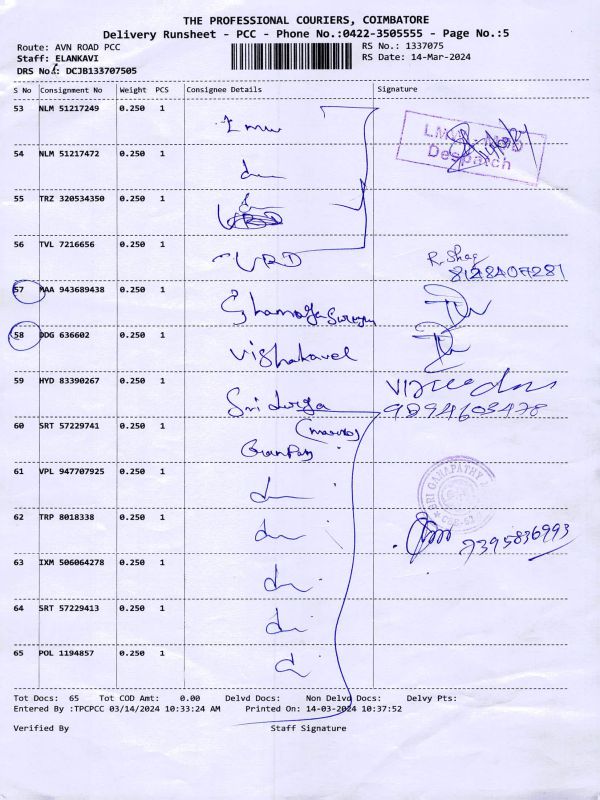 THE PROFESSIONAL COURIERS, COIMBATORE
Delivery Runsheet - PCC - Phone No.:0422-3505555 - Page No.:5
Route: AVN ROAD PCC
RS No.: 1337075
Staff: ELANKAVI
RS Date: 14-Mar-2024
DRS No.: DCJB133707505
S No Consignment No Weight PCS Consignee Details Signature
53 NLM 51217249 0.250 1
Despatch
54 NLM 51217472 0.250 1
55 TRZ 320534350 0.250 1
56 TVL 7216656 0.250 1
URD
8128407281
57 MAA 943689438 0.250 1
58 DDG 636602 0.250 1
Vishakavel
59 HYD 83390267 0.250 1
Sri durga
9894603478
60 SRT 57229741 0.250 1
61 VPL 947707925 0.250 1
SRI GANAPATHY
62 TRP 8018338 0.250 1
7395836993
63 IXM 506064278 0.250 1
64 SRT 57229413 0.250 1
65 POL 1194857 0.250 1
Tot Docs: 65 Tot COD Amt: 0.00 Delvd Docs: Non Delvd Docs: Delvy Pts:
Entered By :TPCPCC 03/14/2024 10:33:24 AM Printed On: 14-03-2024 10:37:52
Verified By Staff Signature